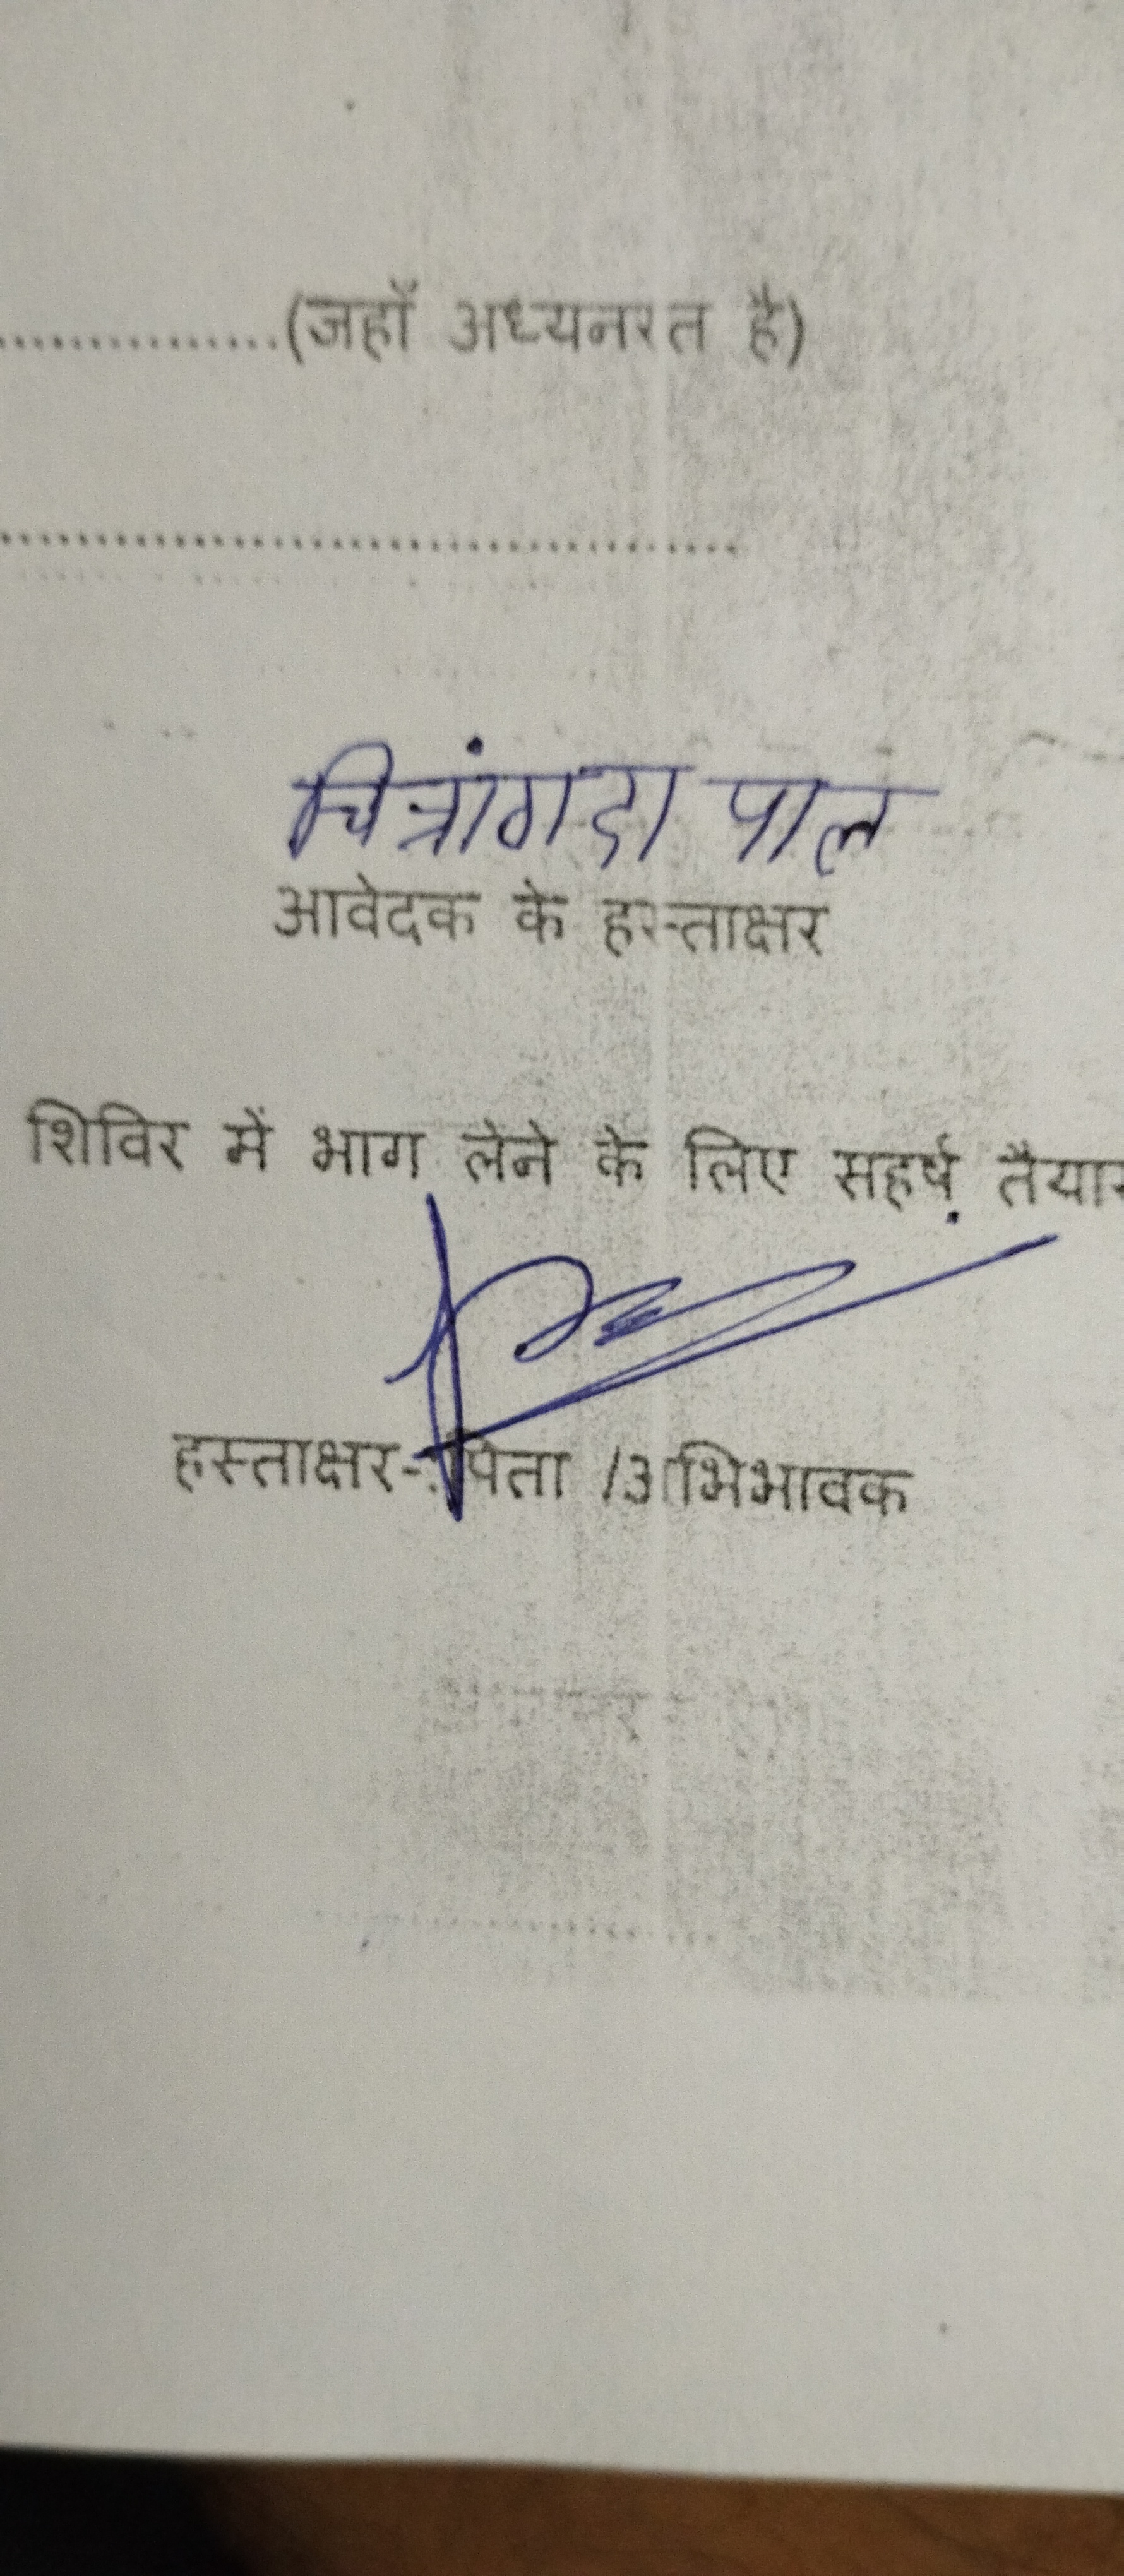 ...............(जहाँ अध्यनरत है)
..........................................
चित्रांगदा पाल
आवेदक के हस्ताक्षर
शिविर में भाग लेने के लिए सहर्ष तैयार
हस्ताक्षर-पिता /अभिभावक